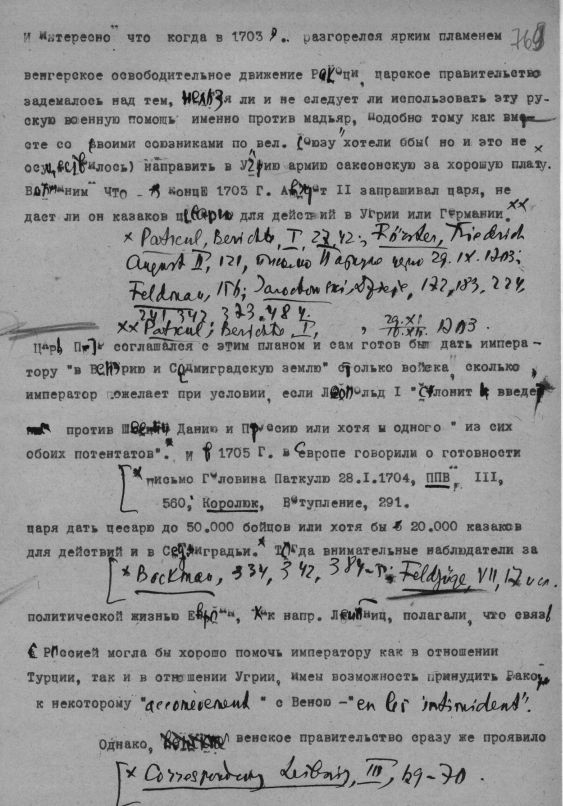 769
И интересно что когда в 1703 г. разгорелся ярким пламенем
венгерское освободительное движение Ракоци, царское правительство
задемалось над тем, нельзя ли и не следует ли использовать эту ру-
скую военную помощь именно против мадьяр, подобно тому как вме-
сте со своими союзниками по вел. союзу хотели ббы( но и это не
осуществилось) направить в Угрию армию саксонскую за хорошую плату.
Вспомним что - в конце 1703 г. Август II запрашивал царя, не
даст ли он казаков цесарю для действий в Угрии или Германии. xx
x Patkul, Berichte, I, 27, 42; Förster, Friedrich
August II, 121, письмо Паткуля царю 29.IX.1703;
Feldman, 156; Jarochowski, Dzieje, 172, 183, 224,
241, 342, 373, 484.
xx Patkul, Berichte I, , 29.XI 1703.
Царь Петр соглашался с этим планом и сам готов был дать импера -
тору "в Венгрию и Седмиградскую землю" столько войска, сколько
император пожелает при условии, если Леопольд I "склонит к введет
против Швеции Данию и Пруссию или хотя ы одного " из сих
обоих потентатов".x И в 1705 г. в Европе говорили о готовности
[ x письмо Головина Паткулю 28.I.1704, ППВ, III,
560; Королюк, Вступление, 291.
царя дать цесарю до 50.000 бойцов или хотя бы 20.000 казаков
для действий и в Седмиградьи.x Тогда внимательные наблюдатели за
[ x 334, 342, 384 Feldzüge, VII, 17 и сл.
политической жизнью Европы, как напр. Лейбниц, полагали, что связь
с Россией могла бы хорошо помочь императору как в отношении
Турции, так и в отношении Угрии, имеы возможность принудить Ракоци
к некоторому " " с Веною -"en les intimident".
Однако, венское правительство сразу же проявило
[ x Leibniz, III, 69-70.